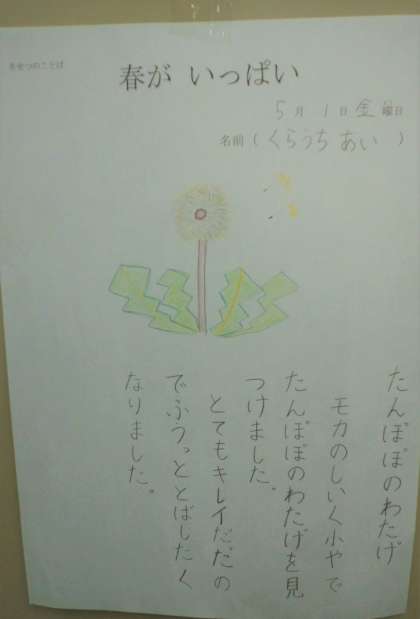 きせつのことば
春が いっぱい
5月 1日 金曜日
名前(くらうち あい )
たんぽぽのわたげ
モカのしいく小やで
たんぽぽのわたげを見
つけました。
とてもキレイだだの
でふうっととばしたく
なりました。